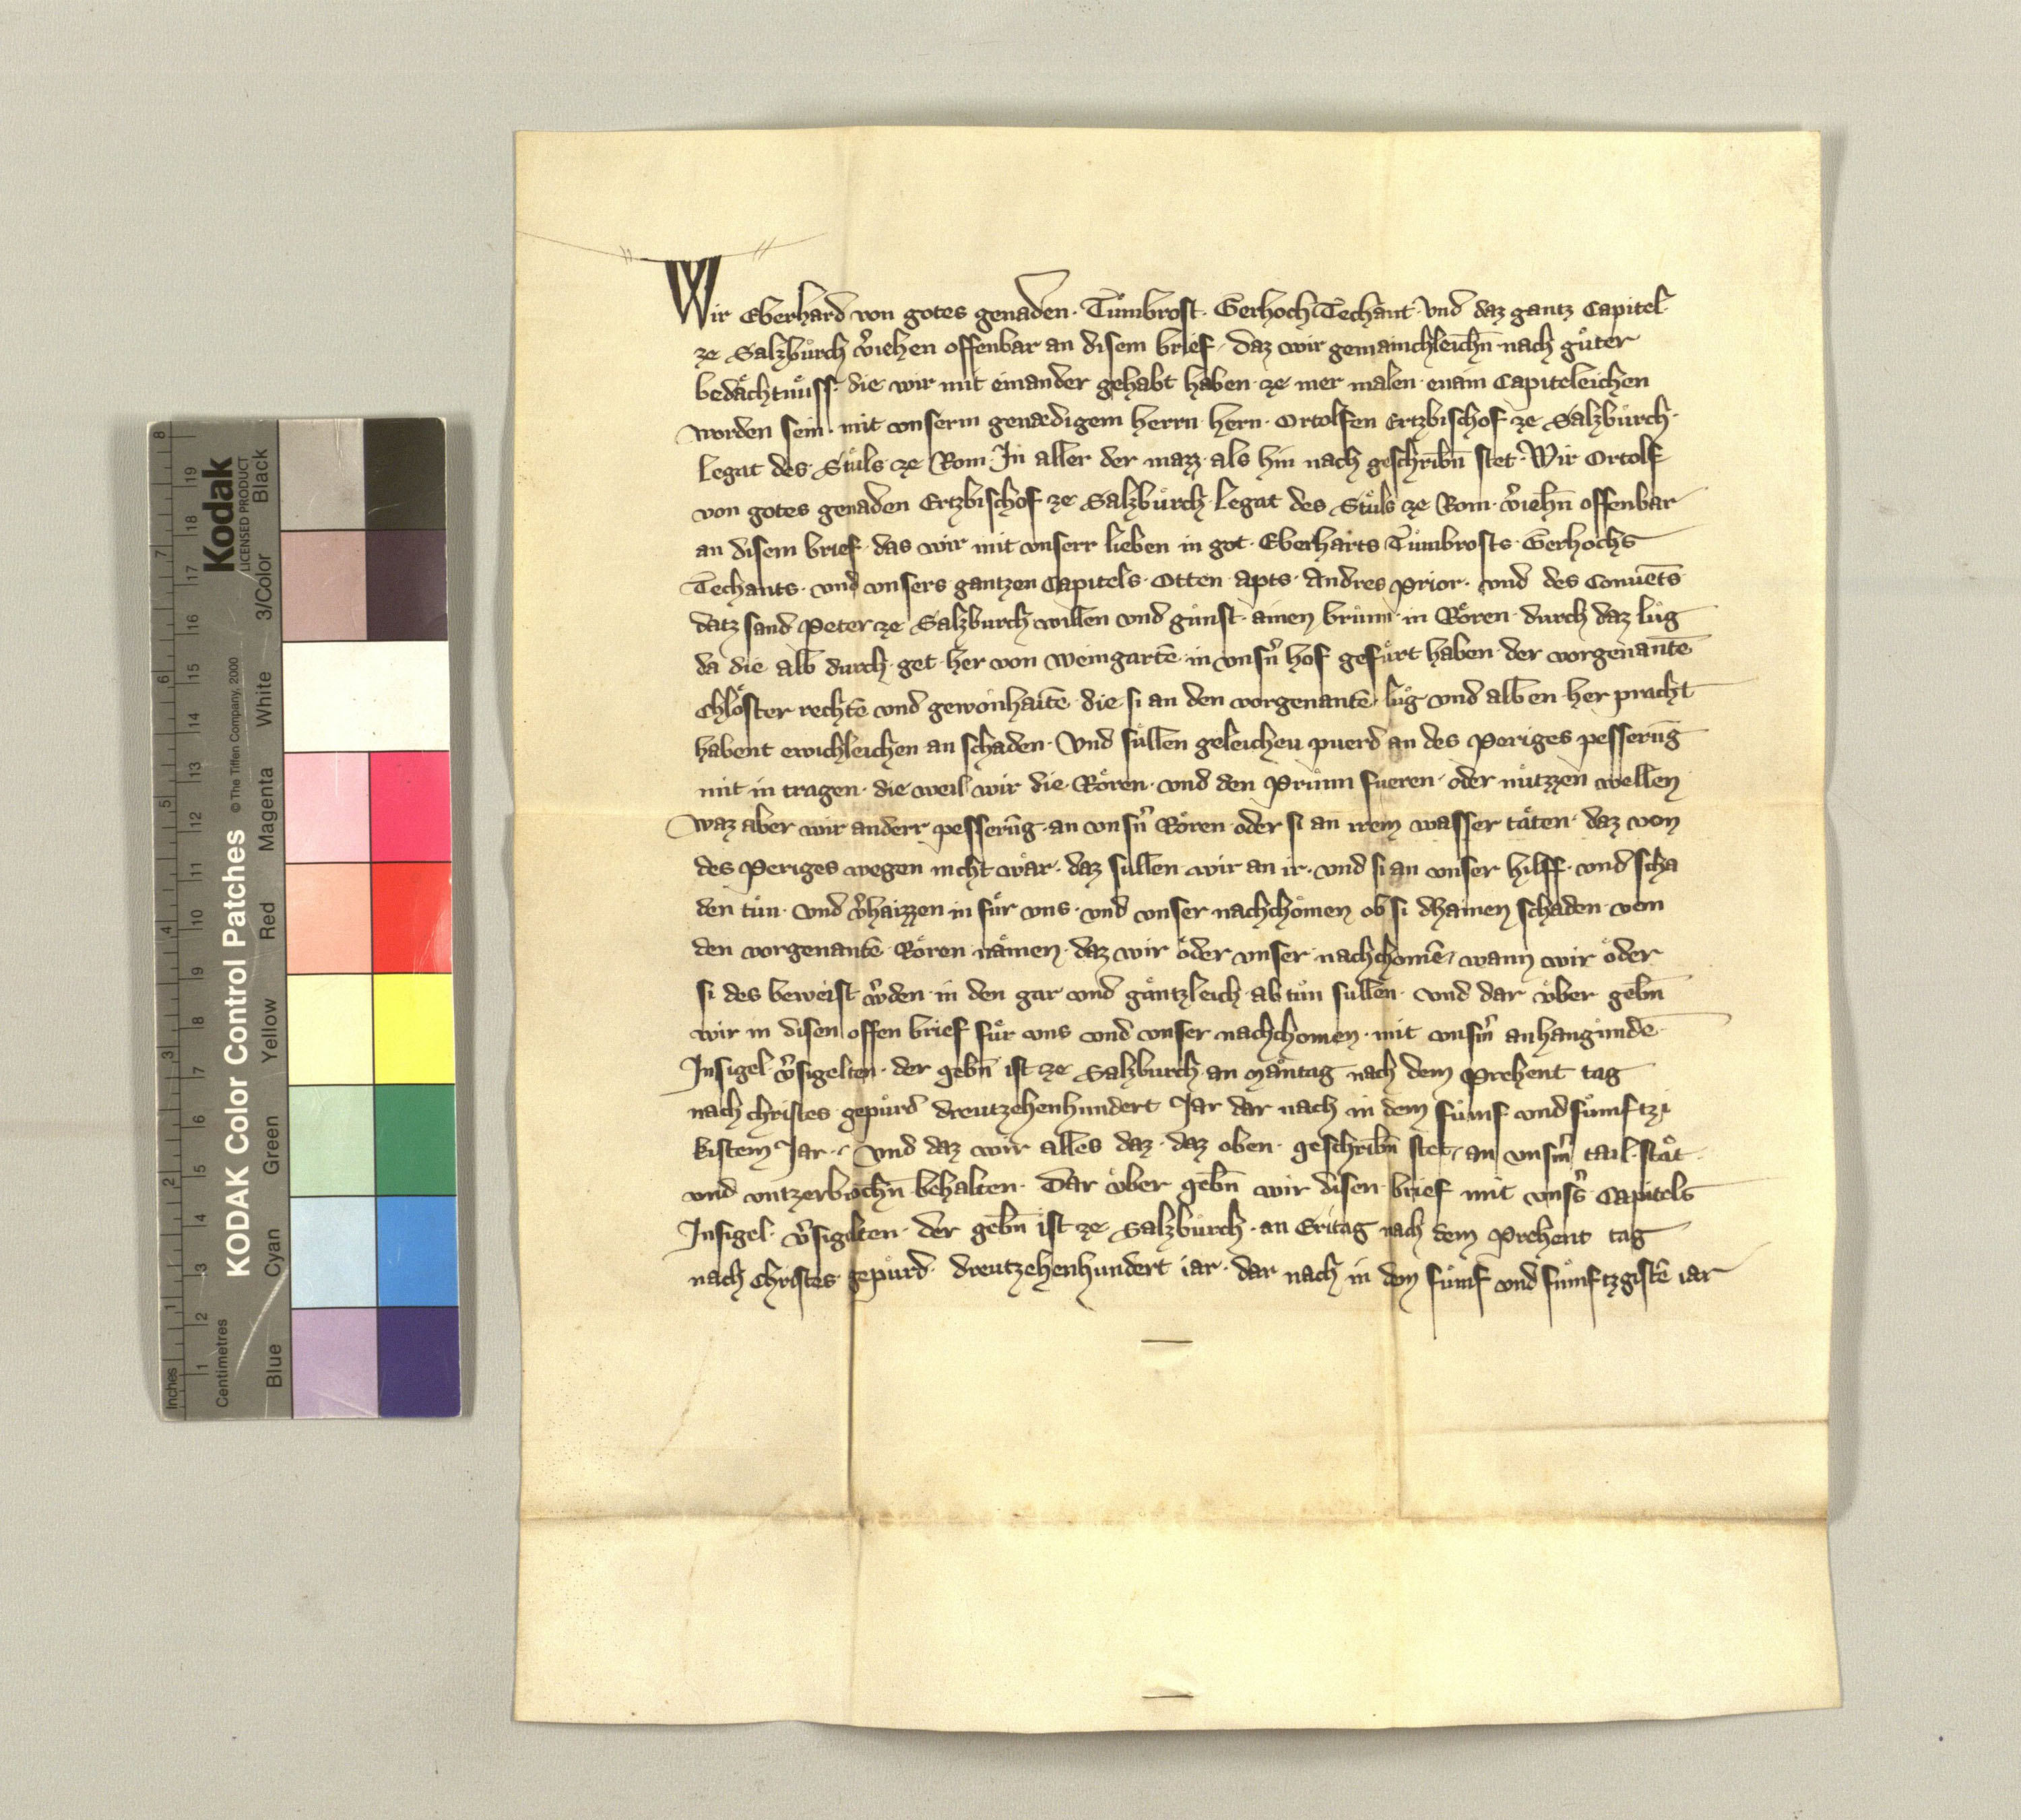 Wir Eberhard von gotes genaden · Tůmbrost · Gerhoch Techant · Vnd daz gantz Capitel ·
ze Salzbůrch v̾iehen offenbar an disem brief · daz wir gemainchleichn̄ nach gůter
bedaͤchtnůss · die wir mit einander gehabt haben · ze mer malen · enain Capiteleichen
worden sein · mit vnserm genædigem herrn hern · Ortolfen Ertzbischof ze Salzbůrch ·
Legat des Stůls ze Rom · In aller der mazz · als hin nach geschribn̄ stet · Wir Ortolf
von gotes genaden Ertzbischof ze Salzbůrch · Legat des Stůls ze Rom · v̾iehn̄ offenbar
an disem brief · das wir mit vnserr lieben in got · Eberharts Tůmbrosts · Gerhochs
Techants · vnd vnsers gantzen Capitels · Otten apts · Andres Prior · vnd des Conuēts
datz sand Peter ze Salzburch willen vnd gůnst · ainen brůnn · in Roͤren · durch daz lůg
da die alb durch get · her von Weingartē · in vnsn̾ hof gefuͤrt haben · der vorgenantē
Chloͤster rechtē vnd gewonhaitē · die si an den vorgenantē · lůg vnd alben · her pracht
habent ewichleichen an schaden · Vnd sůllen geleichew puerd an des Periges pesserūg
mit in tragen · die weil wir die · Roͤren · vnd den Průnn fueren · oder nůtzzen wellen
Waz aber wir anderr pesserūg · an vnsn̾ Roͤren · oder si an irem wasser taͤten · daz von
des Periges wegen nicht waͤr · daz sullen wir an ir · vnd si an vnser hilff · vnd scha
den tůn · vnd v̾haizzen in fuͤr vns · vnd vnser nachchoͤmen ob si dhainen schaden · von
den vorgenantē Roͤren naͤmen · daz wir oder vnser nachchomē / wann wir oder
si des beweist w̾den · in den gar vnd gaͤntzleich · ab tůn sullen · vnd dar vͤber gebn̄
wir in disen offen brief fuͤr vns vnd vnser nachchomen · mit vnsm̾ anhangundē
Insigel v̾sigelten · der gebn̄ ist ze Salzburch · an Maͤntag nach dem Prehent tag
nach christes gepůrd dreutzehenhundert Jar dar nach in dem fůmf vnd fůmftzi
kistem Jar · vnd daz wir alles daz · daz oben · geschribn̄ stet / an vnsm̾ tail · staͤt
vnd vntzerbrochn̄ behalten · Dar vͤber gebn̄ wir disen brief mit vnss̾ Capitels
Insigel · v̾sigelten · der gebn̄ ist ze Salzbůrch · an Eritag nach dem Prehent tag
nach Christes gepůrd · dreutzehenhundert iar · dar nach in dem fůmf vnd fůmftzgistē iar
Kodak
LICENSED PRODUCT
KODAK Color Control Patches
© The Tiffen Company, 2000
Inches
1 2 3 4 5 6 7 8
Centimetres
1 2 3 4 5 6 7 8 9 10 11 12 13 14 15 16 17 18 19
Blue
Cyan
Green
Yellow
Red
Magenta
White
3/Color
Black